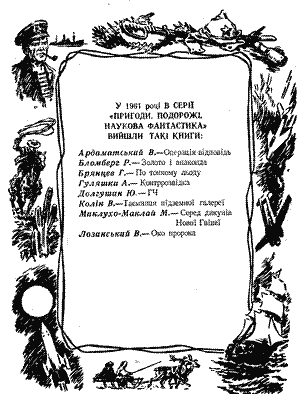 У 1961 році В СЕРІЇ
«ПРИГОДИ. ПОДОРОЖІ.
НАУКОВА ФАНТАСТИКА»
ВИЙШЛИ ТАКІ КНИГИ:
Ардаматський В.—Операція відповідь
Бломберг Р.—Золото і анаконда
Брянцев Г.—По тонкому льоду
Гуляшки А.—Контррозвідка
Долгушин Ю.—ГЧ
Колін В.—Таємниця підземної галереї
Миклухо-Маклай М.—Серед дикунів
Нової Гвінеї
Лозанський В.—Око пророка